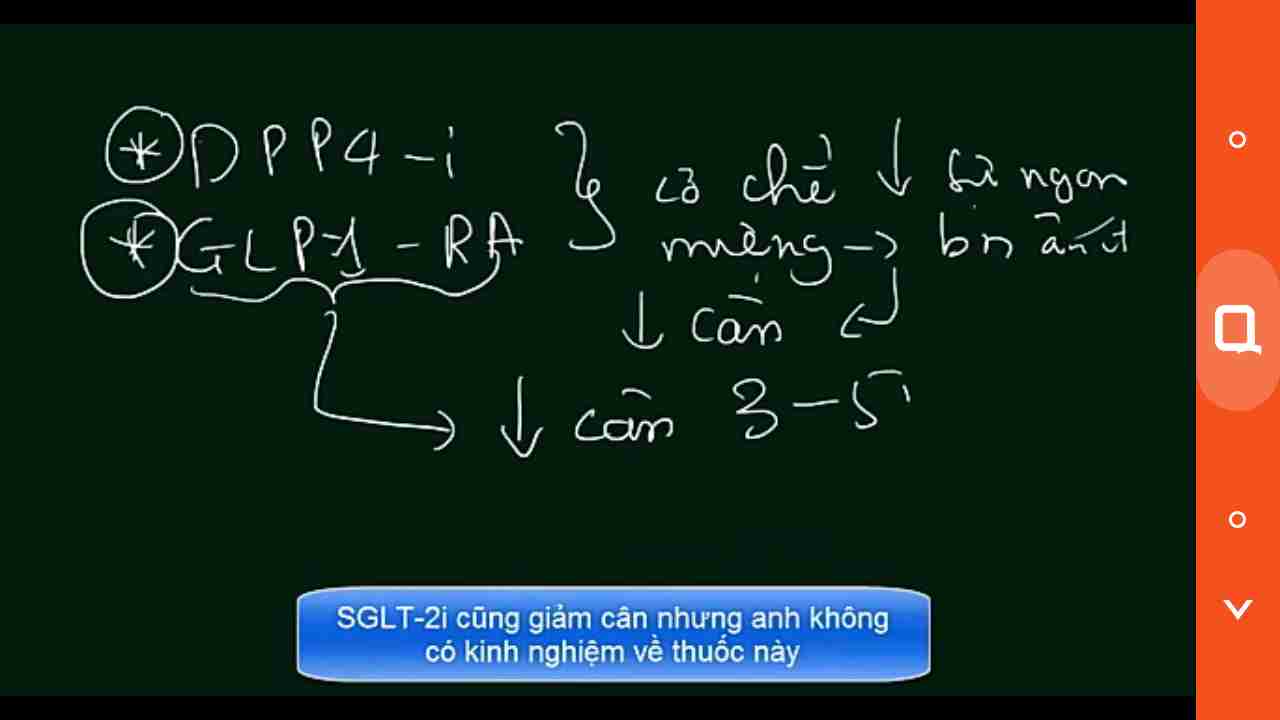 * DPP4-i
* GLP-1 - RA
cơ chế ↓ sự ngon
miệng → bn ăn ít
↓ cân
↓ cân 3-5
SGLT-2i cũng giảm cân nhưng anh không
có kinh nghiệm về thuốc này